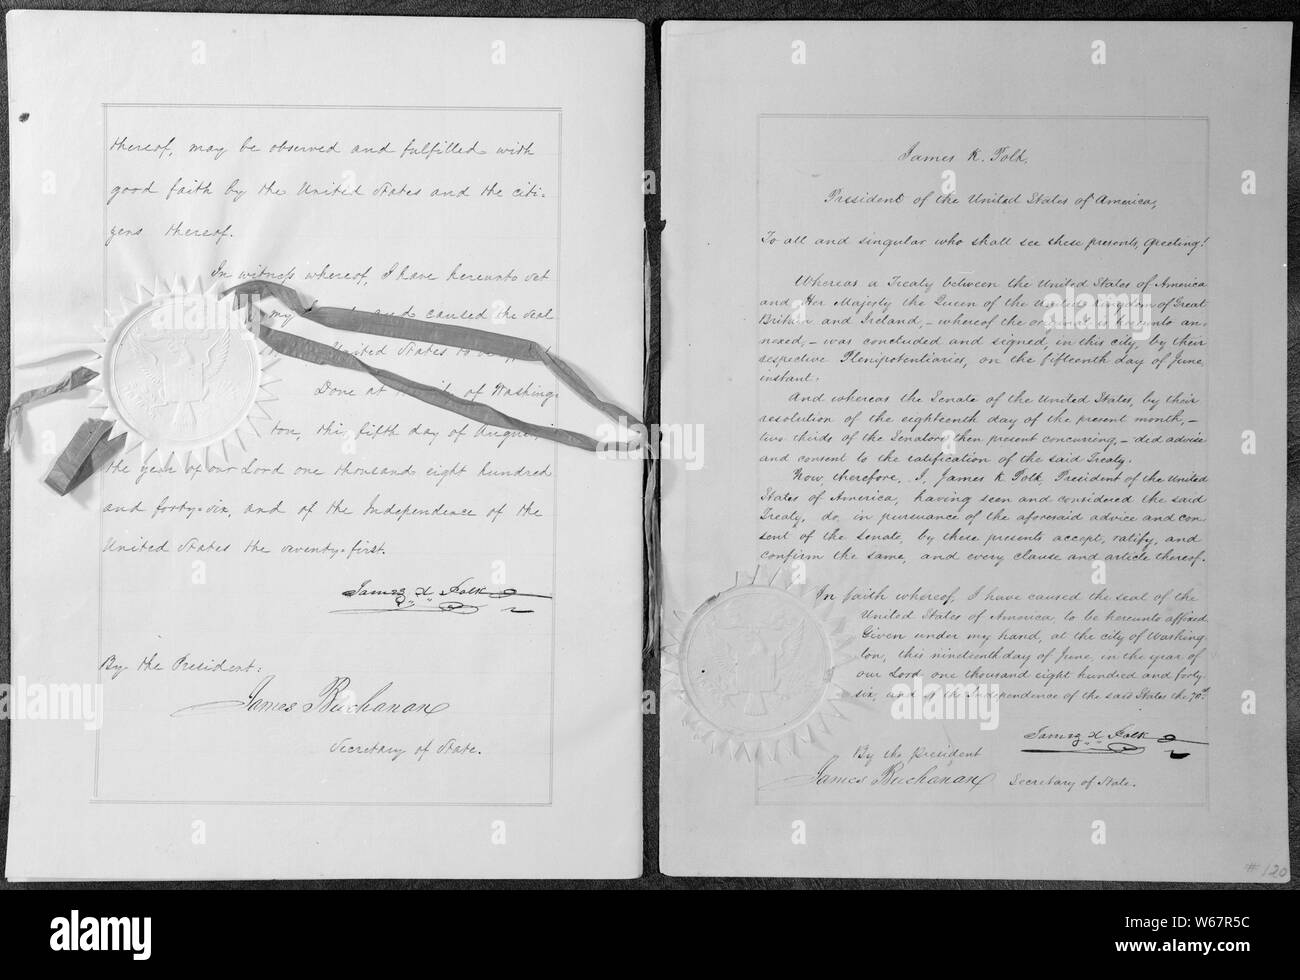 thereof, may be observed and fulfilled with
good faith by the United States and the citi-
zens thereof.
In witness whereof, I have hereunto set
my and caused the seal
United States to be
Done at of Washing-
ton, this fifth day of August, in
the year of our Lord one thousand eight hundred
and forty-six, and of the Independence of the
United States the seventy-first.
James K. Polk
By the President:
James Buchanan
Secretary of State.
James K. Polk,
President of the United States of America,
To all and singular who shall see these presents, Greeting!
Whereas a Treaty between the United States of America
and Her Majesty the Queen of the United Kingdom of Great
Britain and Ireland, – whereof the original is hereunto an-
nexed, – was concluded and signed, in this city, by their
respective Plenipotentiaries, on the fifteenth day of June,
instant.
And whereas the Senate of the United States, by their
resolution of the eighteenth day of the present month, –
two thirds of the Senators then present concurring, – did advise
and consent to the ratification of the said Treaty.
Now, therefore, I, James K. Polk, President of the United
States of America, having seen and considered the said
Treaty, do, in pursuance of the aforesaid advice and con-
sent of the Senate, by these presents accept, ratify, and
confirm the same, and every clause and article thereof.
In faith whereof, I have caused the seal of the
United States of America, to be hereunto affixed.
Given under my hand, at the city of Washing-
ton, this nineteenth day of June, in the year of
our Lord one thousand eight hundred and forty-
six, and of the Independence of the said States the 70th.
James K. Polk
By the President
James Buchanan Secretary of State.
# 120
alamy
Image ID: W67R5C
www.alamy.com